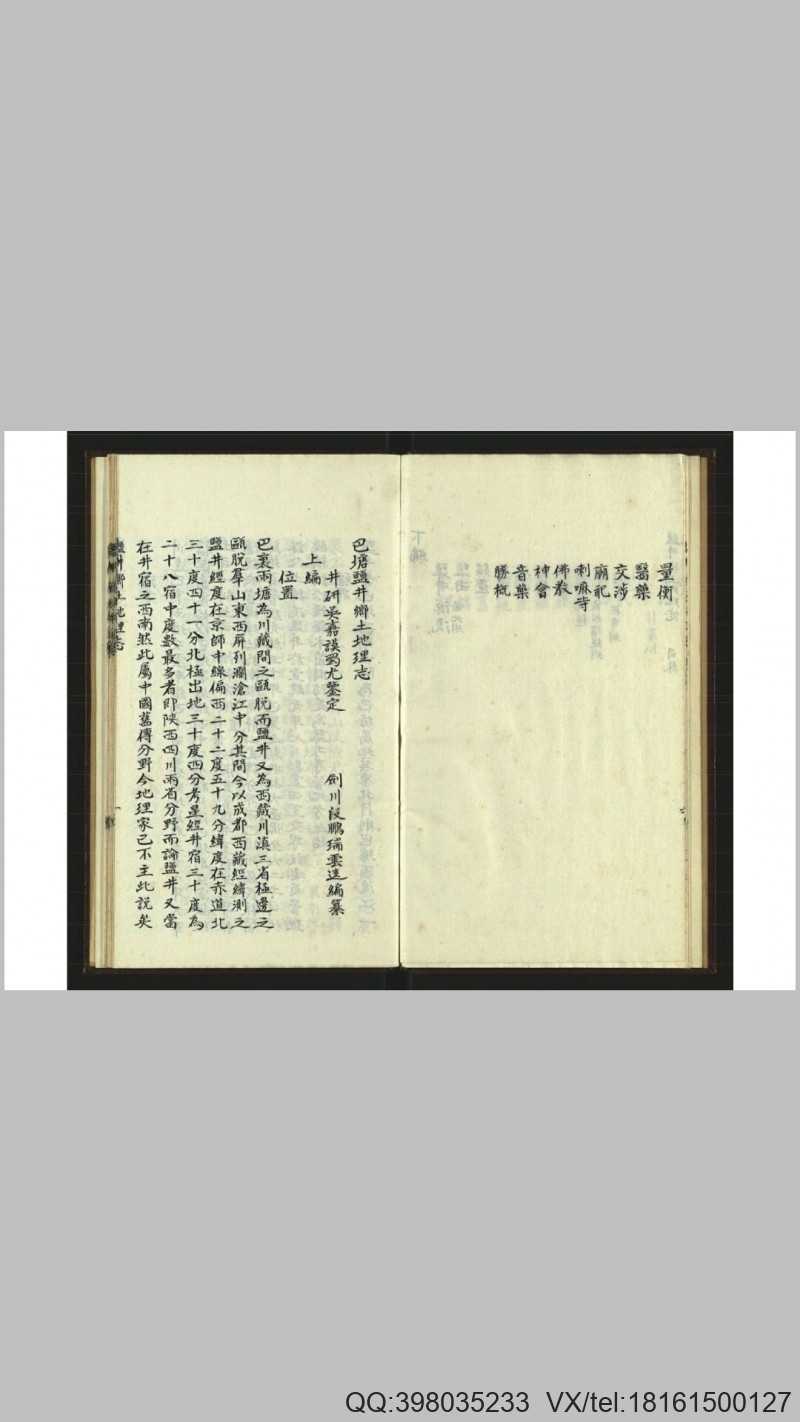 量衡
醫藥
交涉
廟祀
喇嘛寺
佛叢
神會
音樂
勝概
巴塘鹽井鄉土地理志
井研吳嘉謨蜀尤鑒定 劍川段鵬瑞雲逵編纂
上編
位置
巴裏兩塘為川藏間之甌脫而鹽井又為西藏川滇三省極邊之
甌脫羣山東西屏列瀾滄江中分其間今以成都西藏經緯測之
鹽井經度在京師中線偏西二十二度五十九分緯度在赤道北
三十度四十一分北極出地三十度四分考星經井宿三十度為
二十八宿中度數最多者即陝西四川兩省分野而論鹽井又當
在井宿之西南然此屬中國舊傳分野今地理家已不主此說矣
鹽井鄉土地理志
一
QQ:398035233 VX/tel:18161500127